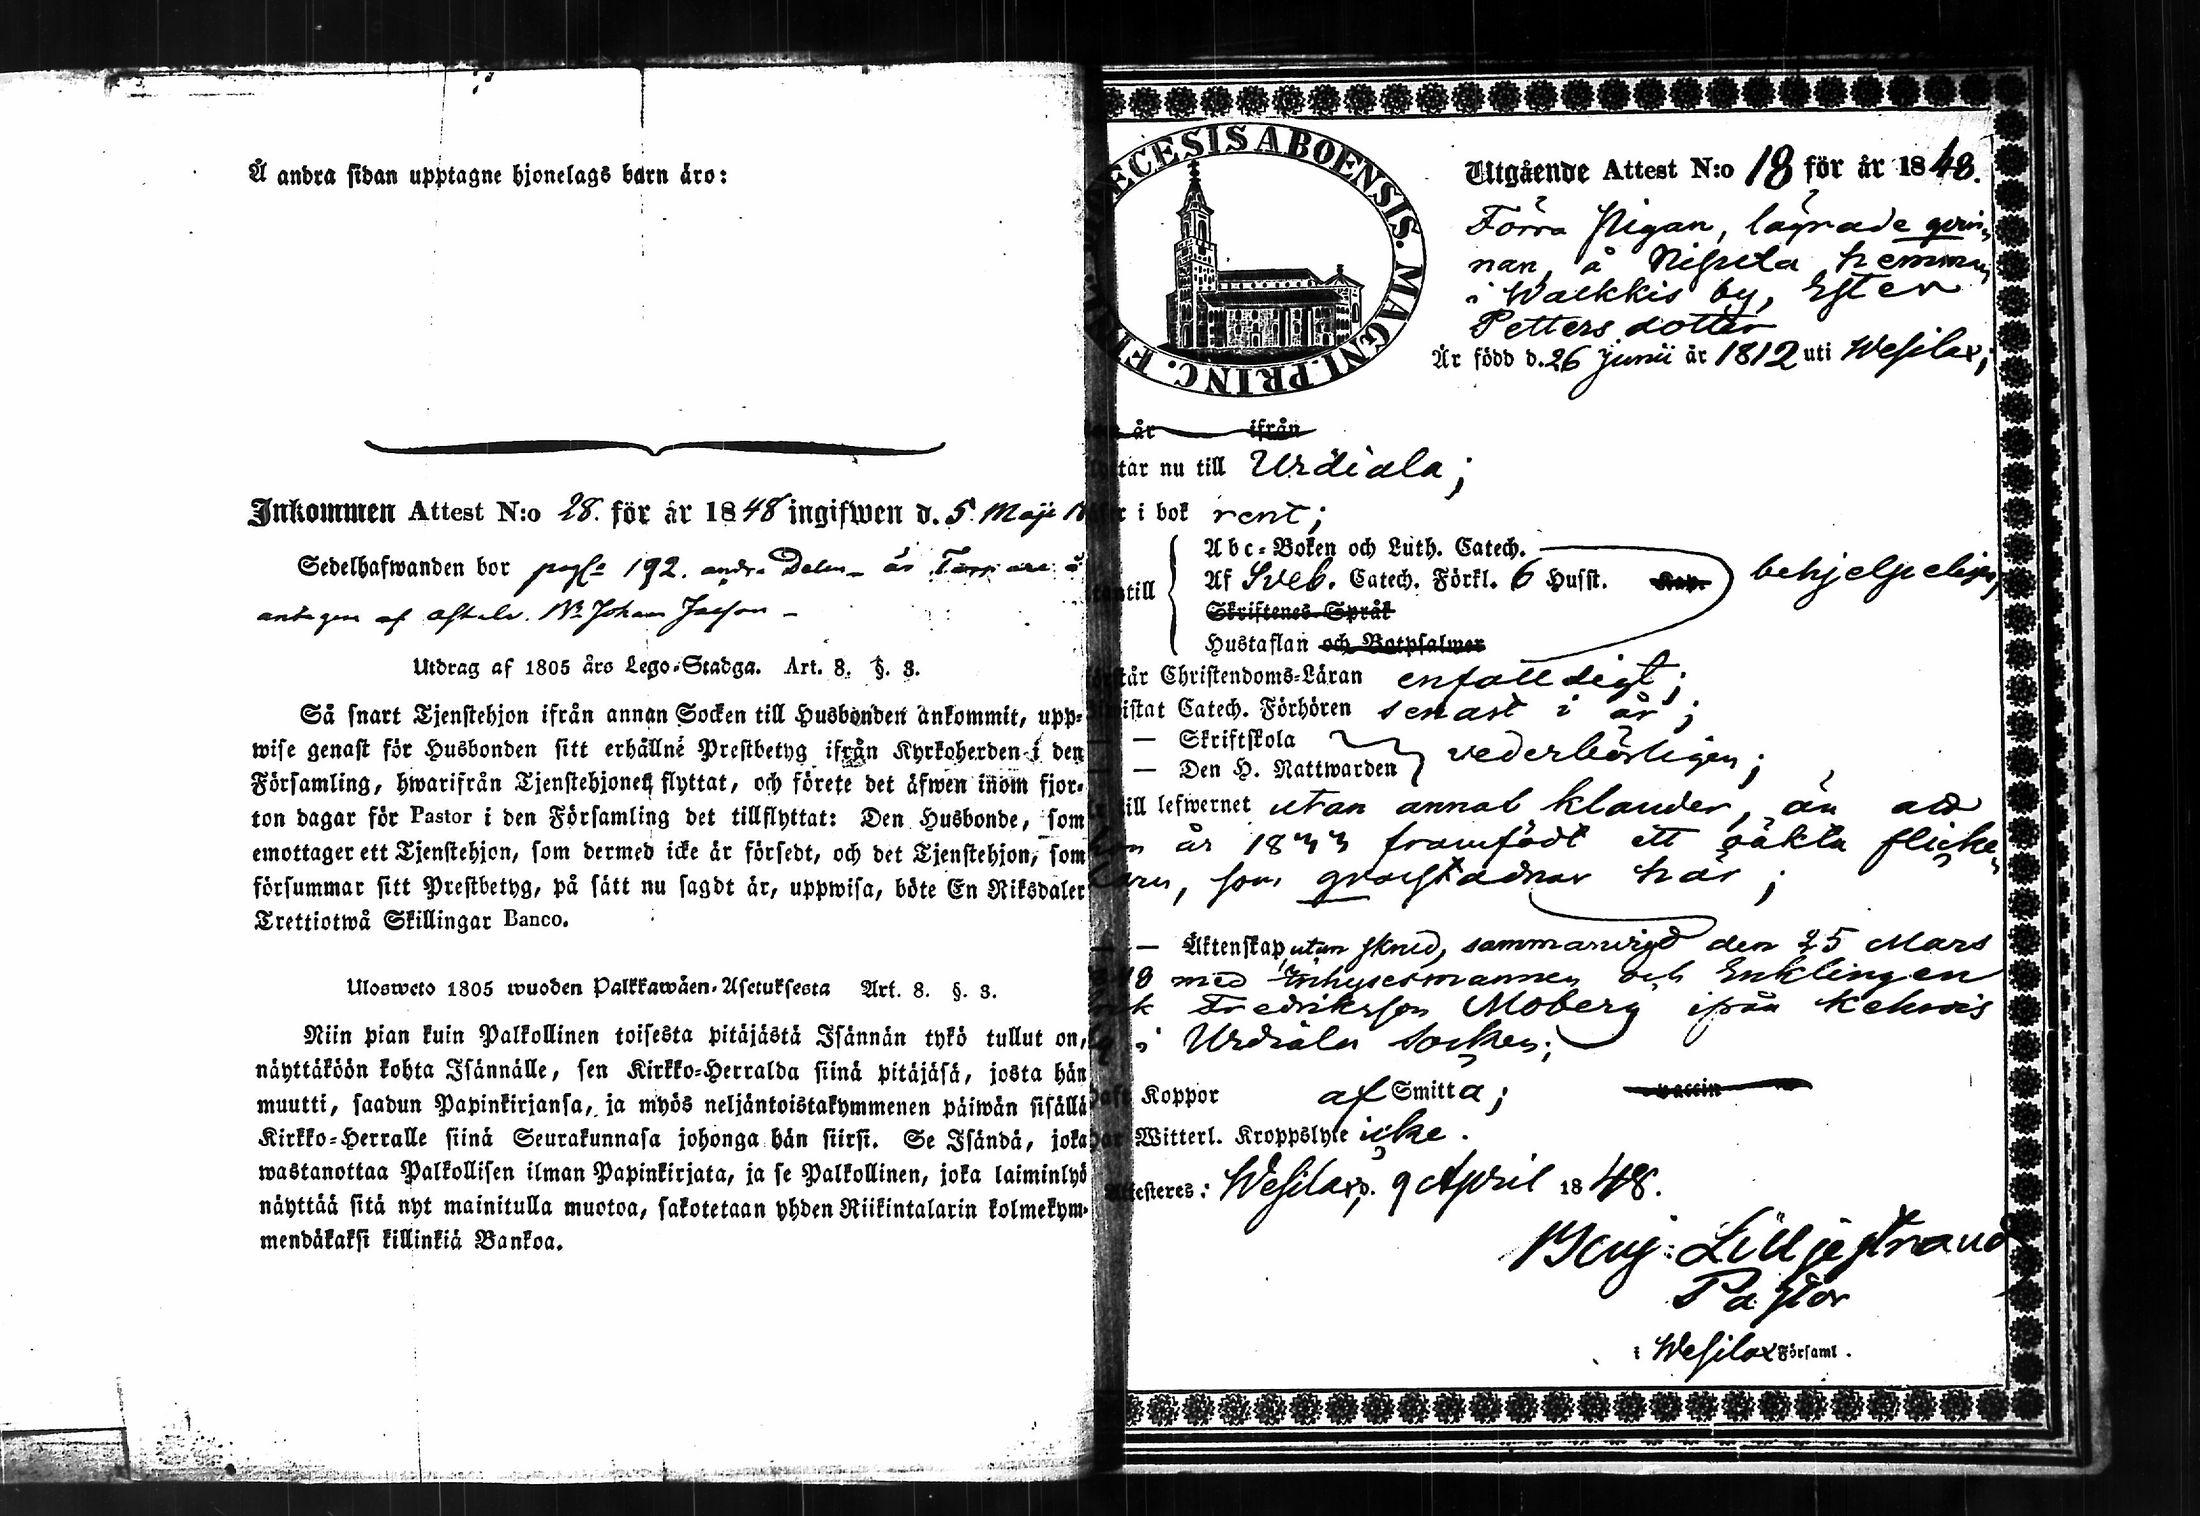 Å andra sidan upptagne hjonelags barn äro:
Inkommen Attest N:o 28. för år 1848 ingifwen d. 5 Maji
Sedelhafwanden bor pag 192. andra Delen
antagen af Johan
Utdrag af 1805 års Lego-Stadga. Art. 8. §. 3.
Så snart Tjenstehjon ifrån annan Socken till Husbonden ankommit, upp-
wise genast för Husbonden sitt erhållne Prestbetyg ifrån Kyrkoherden i den
Församling, hwarifrån Tjenstehjonet flyttat, och förete det äfwen inom fjor-
ton dagar för Pastor i den Församling det tillflyttat: Den Husbonde, som
emottager ett Tjenstehjon, som dermed icke är försedt, och det Tjenstehjon, som
försummar sitt Prestbetyg, på sätt nu sagdt är, uppwisa, böte En Riksdaler
Trettiotwå Skillingar Banco.
Ulosweto 1805 wuoden Palkkawäen-Asetuksesta Art. 8. §. 3.
Niin pian kuin Palkollinen toisesta pitäjästä Isännän tykö tullut on,
näyttäköön kohta Isännälle, sen Kirkko-Herralda siinä pitäjäsä, josta hän
muutti, saadun Papinkirjansa, ja myös neljäntoistakymmenen päiwän sisällä
Kirkko-Herralle siinä Seurakunnasa johonga hän siirsi. Se Isändä, joka
wastanottaa Palkollisen ilman Papinkirjata, ja se Palkollinen, joka laiminlyö
näyttää sitä nyt mainitulla muotoa, sakotetaan yhden Riikintalarin kolmekym-
mendäkaksi killinkiä Bankoa.
ECESIS ABOENSIS. MAGNI. PRINC. FI
Utgående Attest N:o 18 för år 1848.
Förra Pigan, lägrade qvin
nan, å hemman
i Walkkis by, Ester
Petters dotter
Är född d. 26 Junii år 1812 uti Wesilax;
år ifrån
tar nu till Urdiala;
i bok rent;
Abc-Boken och Luth. Catech.
Af Sveb. Catech. Förkl. 6 Husst. Kap. behjelpeligen;
till
Skriftenes Språk
Hustaflan och Botpsalmer
står Christendoms-Läran enfalldigt;
istat Catech. Förhören senast i år;
— Skriftskola
— Den H. Nattwarden vederbörligen;
till lefwernet utan annat klander, än att
hon år 1844 framfödt ett oäkta flicke
barn, som qvarstadnar här;
— Äktenskap, utan sammanvigd den 25 Mars
48 med Inhysesmannen och Enklingen
Fredriksson Moberg ifrån Kehrois
i Urdiala Socken;
haft Koppor af Smitta; vaccin
har Witterl. Kroppslyte icke.
Attesteres: Wesilax, d. 9 April 1848.
Benj: Lilljestrand
Pastor
i Wesilax Församl.